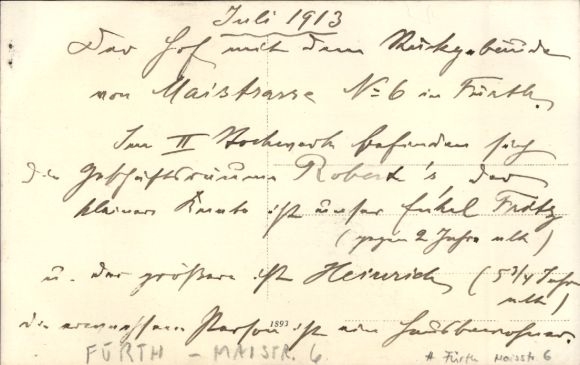 Juli 1913
Der Hof mit dem Rückgebäude
von Maistrasse No 6 in Fürth.
Im II Stockwerk befinden sich
die Geschäftsräume Robert's der
kleinere Knabe ist unser Enkel Fritz
(gegen 2 Jahre alt)
u. der größere ist Heinrich (5 3/4 Jahr
alt)
die erwachsene Person ist ein Hausbewohner.
1893
FÜRTH - MAISTR. 6
A Fürth Maistr 6